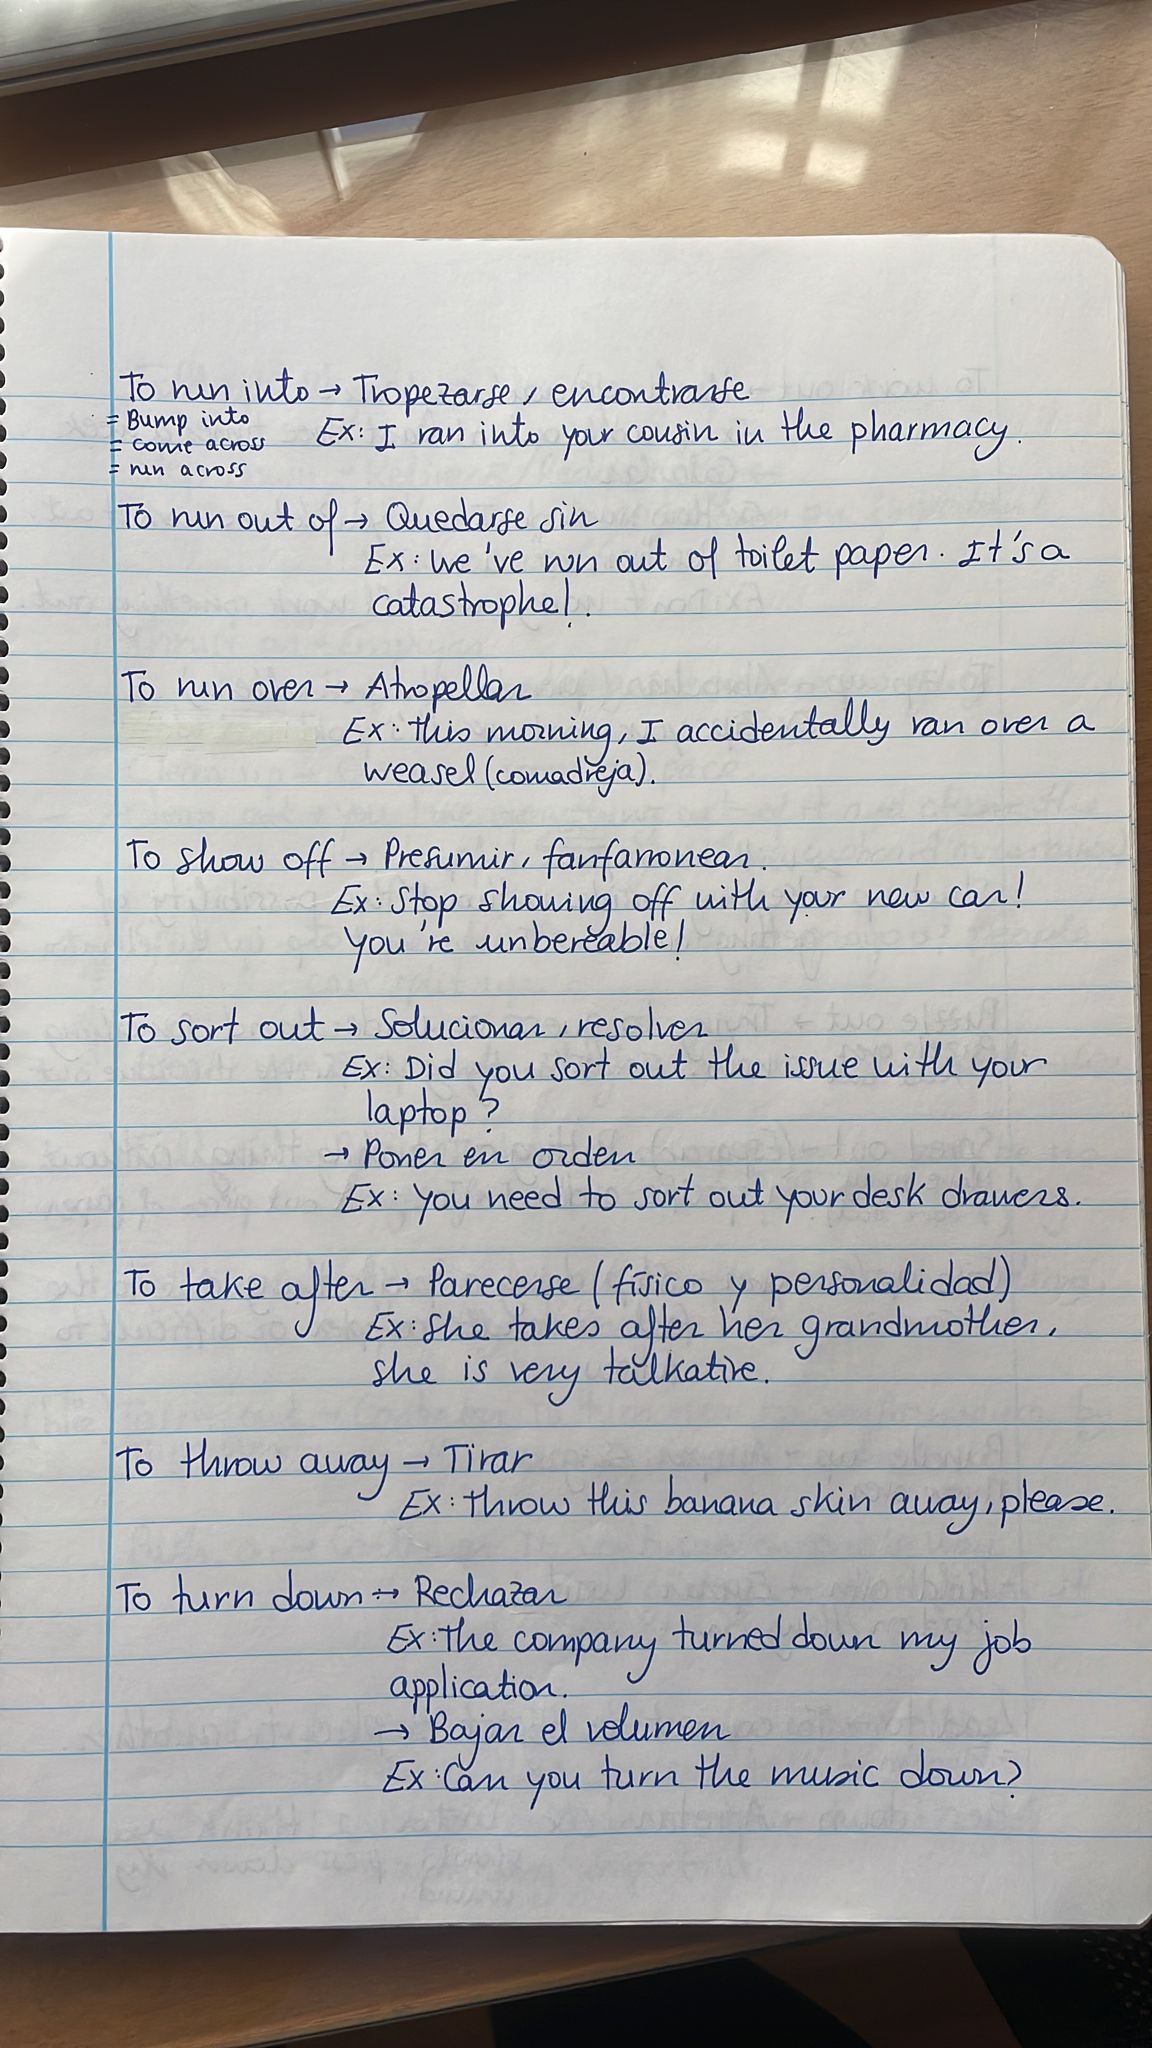 To run into → Tropezarse, encontrarse
= Bump into
= come across
= run across
Ex: I ran into your cousin in the pharmacy.
To run out of → Quedarse sin
Ex: We've run out of toilet paper. It's a
catastrophe!.
To run over → Atropellar
Ex: This morning, I accidentally ran over a
weasel (comadreja).
To show off → Presumir, fanfarronear.
Ex: Stop showing off with your new car!
You're unbereable!
To sort out → Solucionar, resolver
Ex: Did you sort out the issue with your
laptop?
→ Poner en orden
Ex: You need to sort out your desk drawers.
To take after → Parecerse (físico y personalidad)
Ex: She takes after her grandmother,
she is very talkative.
To throw away → Tirar
Ex: Throw this banana skin away, please.
To turn down → Rechazar
Ex: The company turned down my job
application.
→ Bajar el volumen
Ex: Can you turn the music down?